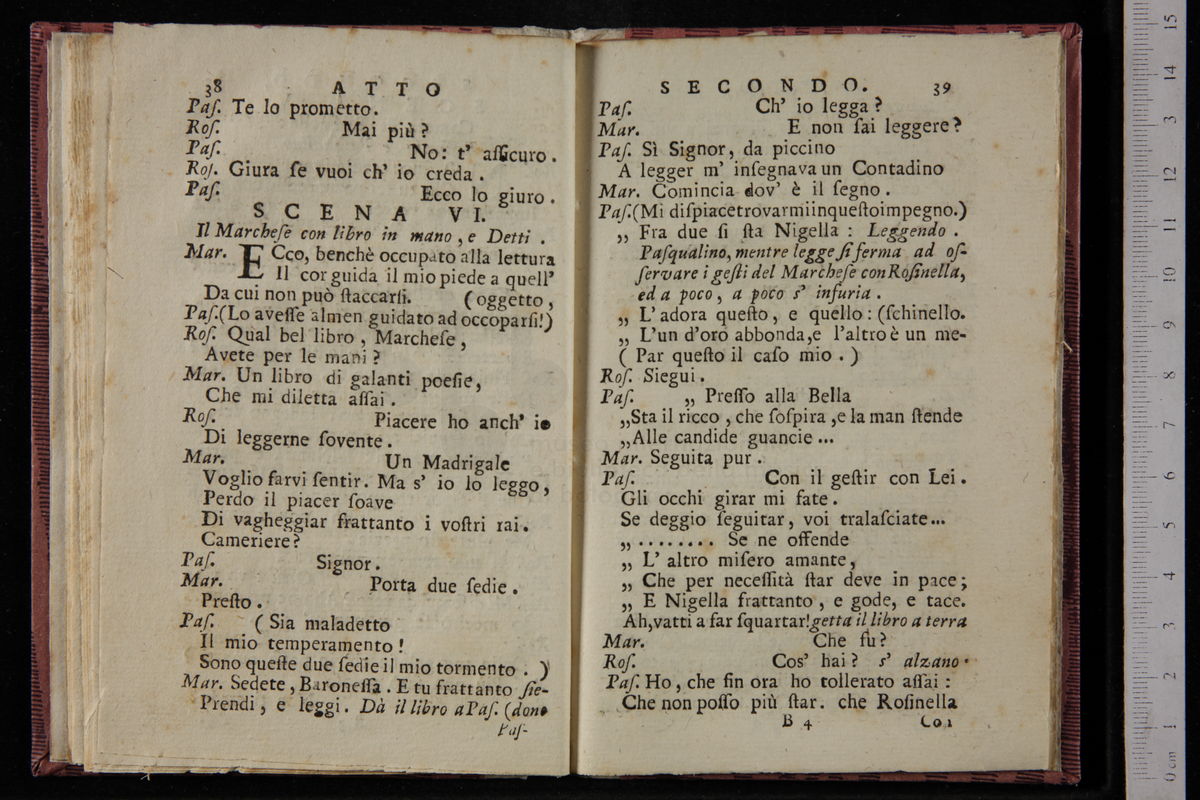 38 ATTO
Paſ. Te lo prometto.
Roſ. Mai più?
Paſ. No: t' aſſicuro.
Roſ. Giura ſe vuoi ch' io creda.
Paſ. Ecco lo giuro.
SCENA VI.
Il Marcheſe con libro in mano, e Detti.
Mar. ECco, benchè occupato alla lettura
Il cor guida il mio piede a quell'
Da cui non può ſtaccarſi. (oggetto,
Paſ.(Lo aveſſe almen guidato ad occoparſi!)
Roſ. Qual bel libro, Marcheſe,
Avete per le mani?
Mar. Un libro di galanti poeſie,
Che mi diletta aſſai.
Roſ. Piacere ho anch' io
Di leggerne ſovente.
Mar. Un Madrigale
Voglio farvi ſentir. Ma s' io lo leggo,
Perdo il piacer ſoave
Di vagheggiar frattanto i voſtri rai.
Cameriere?
Paſ. Signor.
Mar. Porta due ſedie.
Preſto.
Paſ. (Sia maladetto
Il mio temperamento!
Sono queſte due ſedie il mio tormento.)
Mar. Sedete, Baroneſſa. E tu frattanto ſie-
Prendi, e leggi. Dà il libro a Paſ. (dono
Paſ-
SECONDO. 39
Paſ. Ch' io legga?
Mar. E non ſai leggere?
Paſ. Sì Signor, da piccino
A legger m' inſegnava un Contadino
Mar. Comincia dov' è il ſegno.
Paſ.(Mi diſpiacetrovarmiinqueſtoimpegno.)
„ Fra due ſi ſta Nigella: Leggendo.
Paſqualino, mentre legge ſi ferma ad oſ-
ſervare i geſti del Marcheſe con Roſinella,
ed a poco, a poco s' infuria.
„ L' adora queſto, e quello: (ſchinello.
„ L'un d'oro abbonda, e l'altro è un me-
( Par queſto il caſo mio. )
Roſ. Siegui.
Paſ. „ Preſſo alla Bella
„Sta il ricco, che ſoſpira, e la man ſtende
„Alle candide guancie...
Mar. Seguita pur.
Paſ. Con il geſtir con Lei.
Gli occhi girar mi fate.
Se deggio ſeguitar, voi tralaſciate...
„ ........ Se ne offende
„ L' altro miſero amante,
„ Che per neceſſità ſtar deve in pace;
„ E Nigella frattanto, e gode, e tace.
Ah, vatti a far ſquartar! getta il libro a terra
Mar. Che fu?
Roſ. Cos' hai? s' alzano.
Paſ. Ho, che fin ora ho tollerato aſſai:
Che non poſſo più ſtar. che Roſinella
B 4 Co1
15
14
13
12
11
10
9
8
7
6
5
4
3
2
1
0 cm